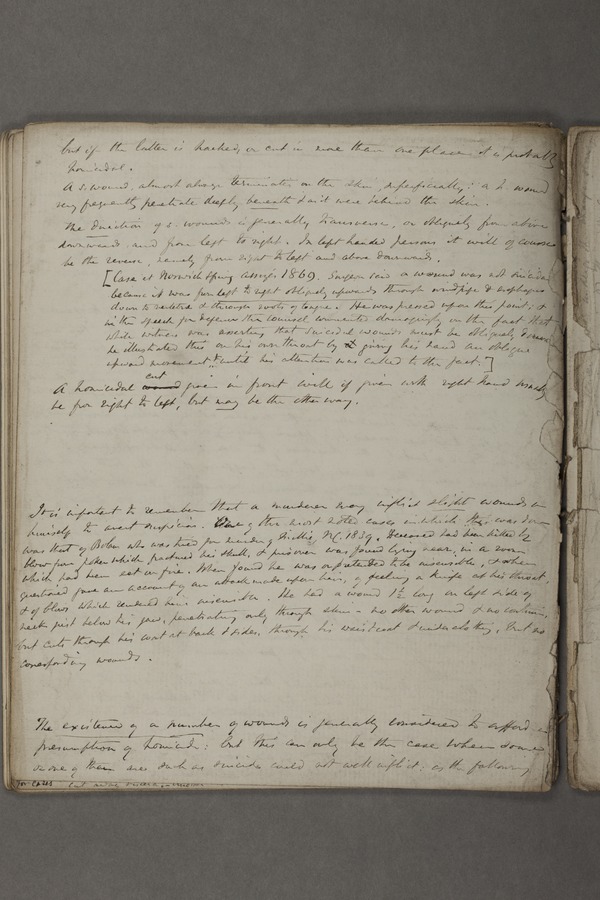 but if the latter is hacked, or cut in more than one place it is probably
homicidal.
A s. wound almost always terminates in the skin, superficially: a h. wound
very frequently penetrates deeply beneath & as it were behind the skin.
The direction of s. wounds is generally transverse, or obliquely from above
downwards, and from left to right. In left handed persons it will of course
be the reverse, namely from right to left and above downwards.
[Case at Norwich Spring Assizes 1869. Surgeon said a wound was not suicidal
because it was from left to right obliquely upwards through windpipe & oesophagus
down to vertebra & through roots of tongue. He was pressed upon this point, &
in the speech for defence the counsel commented damagingly on the fact that
while witness was asserting that suicidal wounds must be obliquely downwards
he illustrated this on his own throat by giving his hand an oblique
upward movement, until his attention was called to the fact.]
A homicidal cut given in front will if given with right hand usually
be from right to left, but may be the other way.
It is important to remember that a murderer may inflict slight wounds on
himself to avert suspicion. One of the most noted cases in which this was done
was that of Bolam who was tried for murder of Millie, Nc. 1839. Deceased had been killed by
blow from poker which fractured his skull, & prisoner was found lying near, in a room
which had been set on fire. When found he was or pretended to be insensible, & when
questioned gave an account of an attack made upon him, of feeling a knife at his throat,
& of blows which rendered him insensible. He had a wound 1½ long on left side of
neck just below his jaw, penetrating only through skin - no other wound & no contusion,
but cuts through his coat at back & sides, through his waistcoat & underclothing, but no
corresponding wounds.
The existence of a number of wounds is generally considered to afford a
presumption of homicide: but this can only be the case when some
or one of them are such as suicides could not well inflict: as the following
for cases